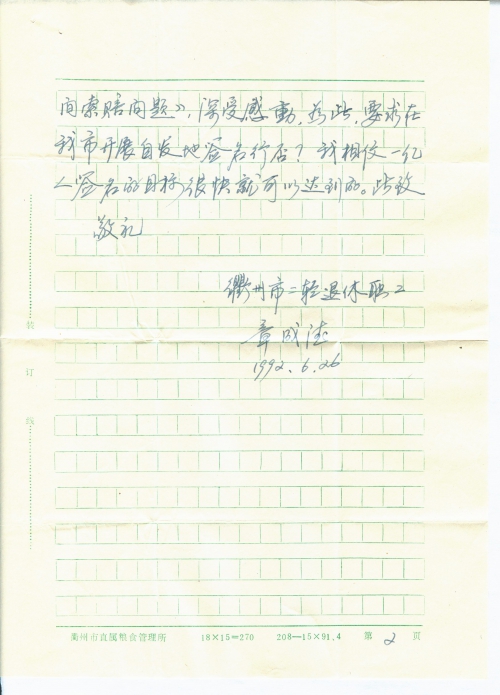 间索赔问题》，深受感動，为此，要求在
我市开展自发地签名行否？我相信一亿
人签名的目标很快就可以达到的。此致
敬礼
衢州市二轻退休职工
章成德
1992.6.26
装
订
线
衢州市直属粮食管理所 18×15=270 208—15×91.4 第 2 页